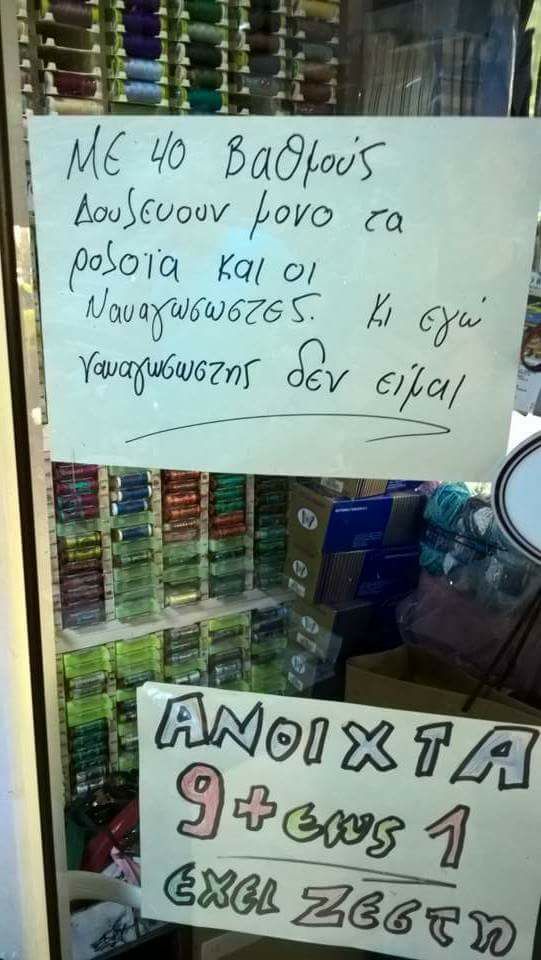 ΜΕ 40 Βαθμούς
Δουλευουν μονο τα
ρολόϊα και οι
Ναυαγωσωστες. Κι εγώ
ναυαγωσωστης δεν είμαι
ΑΝΟΙΧΤΑ
9+ εως 1
ΕΧΕΙ ΖΕΣΤΗ